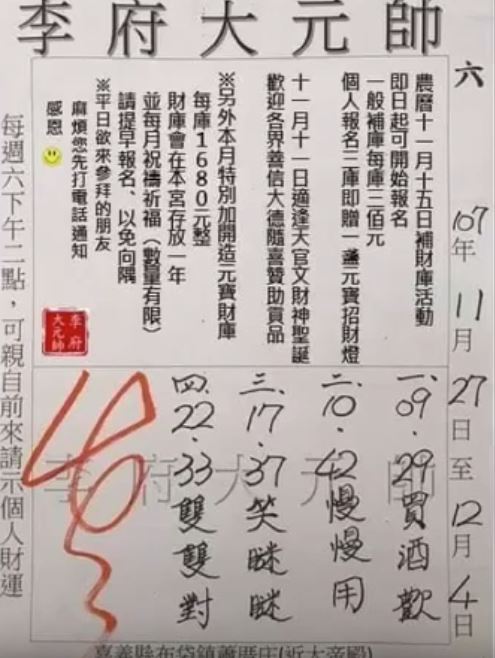 李府大元帥
六
107年11月27日至12月4日
農曆十一月十五日補財庫活動
即日起可開始報名
一般補庫每庫三佰元
個人報名三庫即贈一盞元寶招財燈
十一月十一日適逢天官文財神聖誕
歡迎各界善信大德隨喜贊助賞品
※另外本月特別加開造元寶財庫
每庫1680元整
財庫會在本宮存放一年
並每月祝禱祈福（數量有限）
請提早報名、以免向隅
※平日欲來參拜的朋友
麻煩您先打電話通知
感恩
李府大元帥
一、09.29買酒歡
二、10.42慢慢用
三、17.37笑瞇瞇
四、22.33雙雙對
李府大元帥
每週六下午二點，可親自前來請示個人財運